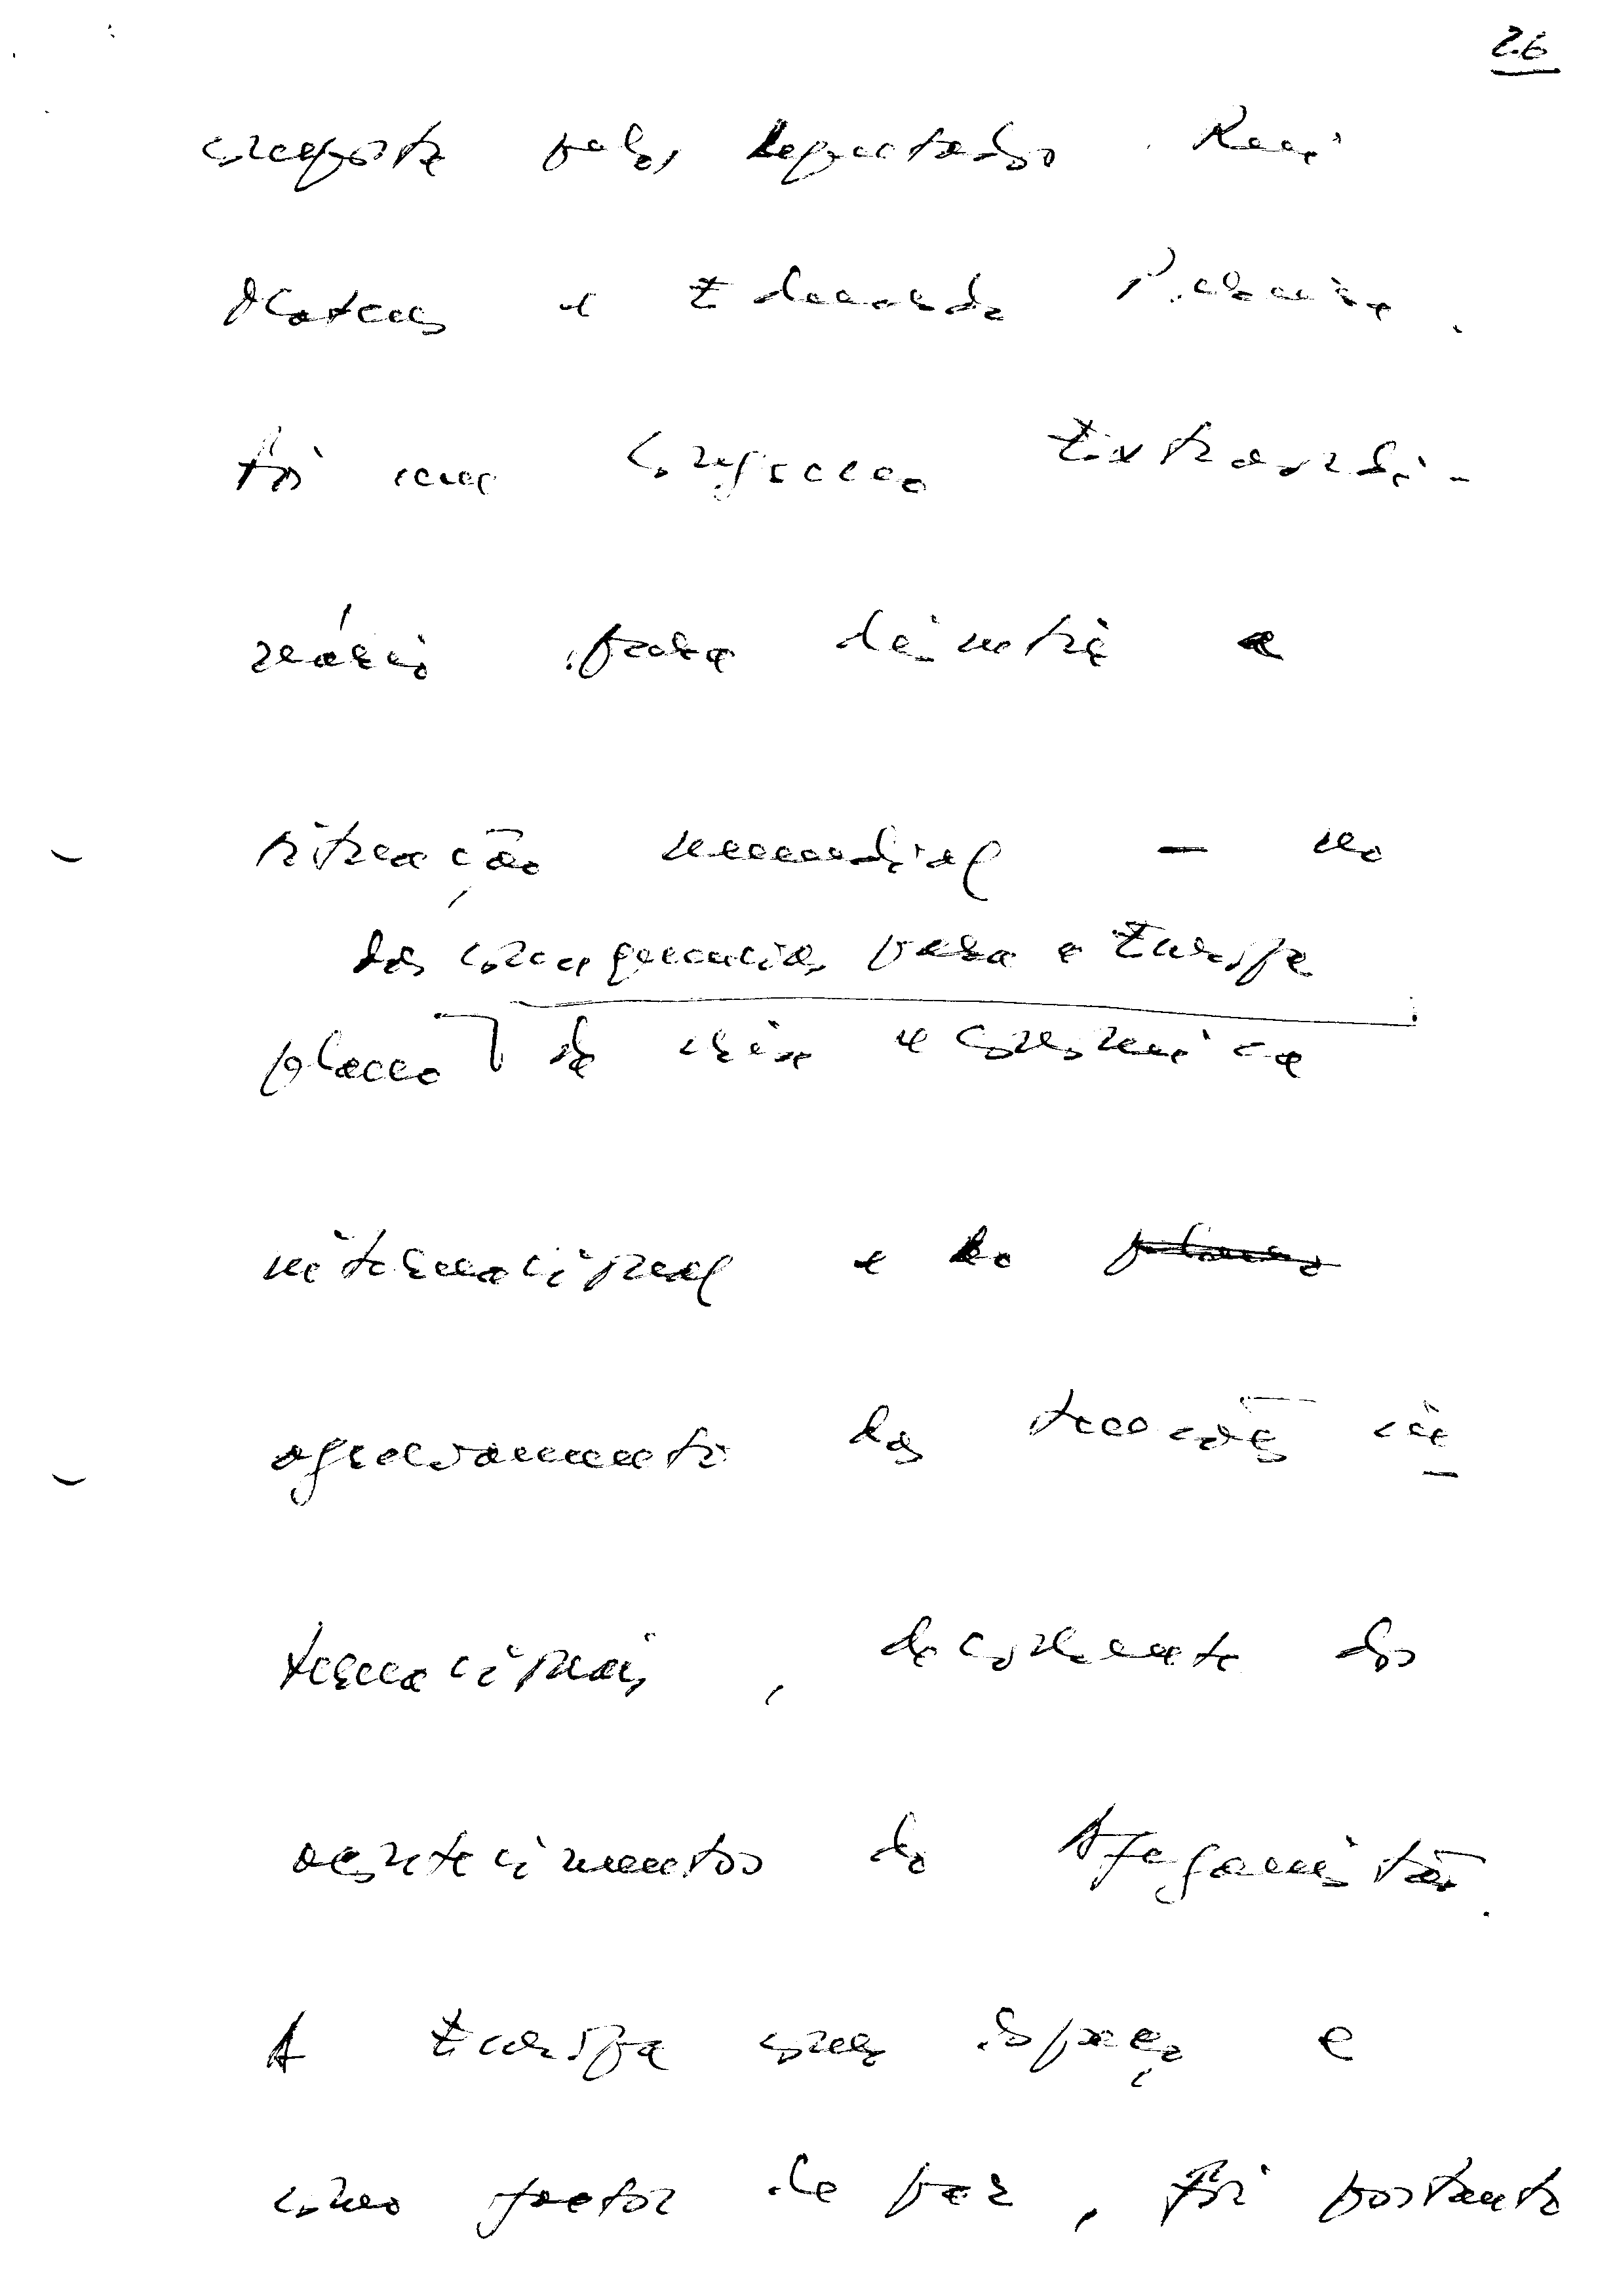 26
composta pelos deputados Rui
Mateus e Eduardo Pereira.
Foi um Congresso Extraordi-
nário para discutir a
situação mundial – no
das consequencias para a Europa
plano da crise economica
internacional e do plano
agravamento das tenções in-
ternacionais, decorrente dos
acontecimentos do Afganistão.
A Europa como espaço e
como factor de paz, foi portanto